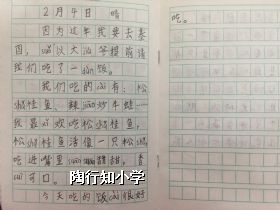 2月4日 晴
因为过年我要去泰
国,所以大油爷提前请
我们吃了一顿饭
我们吃的有:松
鼠桂鱼、辣 炒牛蛙…
我最 欢吃松鼠桂鱼,
松鼠桂鱼活像一只松鼠
吃进嘴里 甜甜,香
可口。
今天吃的饭 很好
吃。
陶行知小学